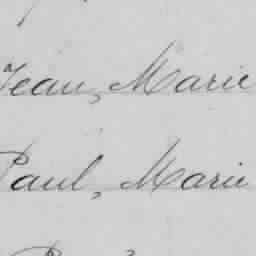 Jean, Marie
Paul, Marie